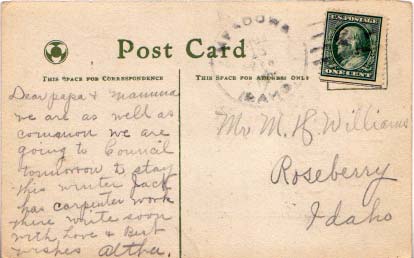 Post Card
THIS SPACE FOR CORRESPONDENCE
THIS SPACE FOR ADDRESS ONLY
U.S. POSTAGE
ONE CENT
IDAHO
Dear papa & mamma
we are as well as
common we are
going to Council
tomorrow to stay
this winter Jack
has carpenter work
there write soon
with Love & Best
wishes Altha.
Mr M. H. Williams
Roseberry
Idaho